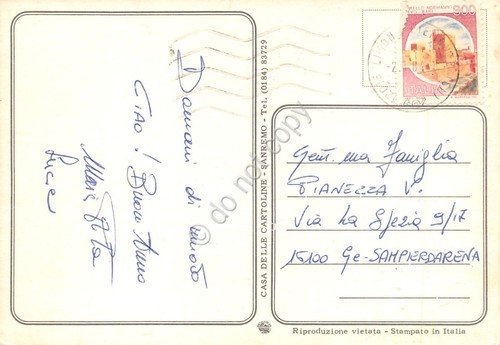 Domani di nuovo
Ciao! Buon Anno
Maria Rita
Luca
CASA DELLE CARTOLINE - SANREMO - Tel. (0184) 83729
300
ITALIA
Gent.ma Famiglia
PIANEZZA V.
Via La Spezia 9/17
16100 Ge-SAMPIERDARENA
Riproduzione vietata - Stampato in Italia
do not copy